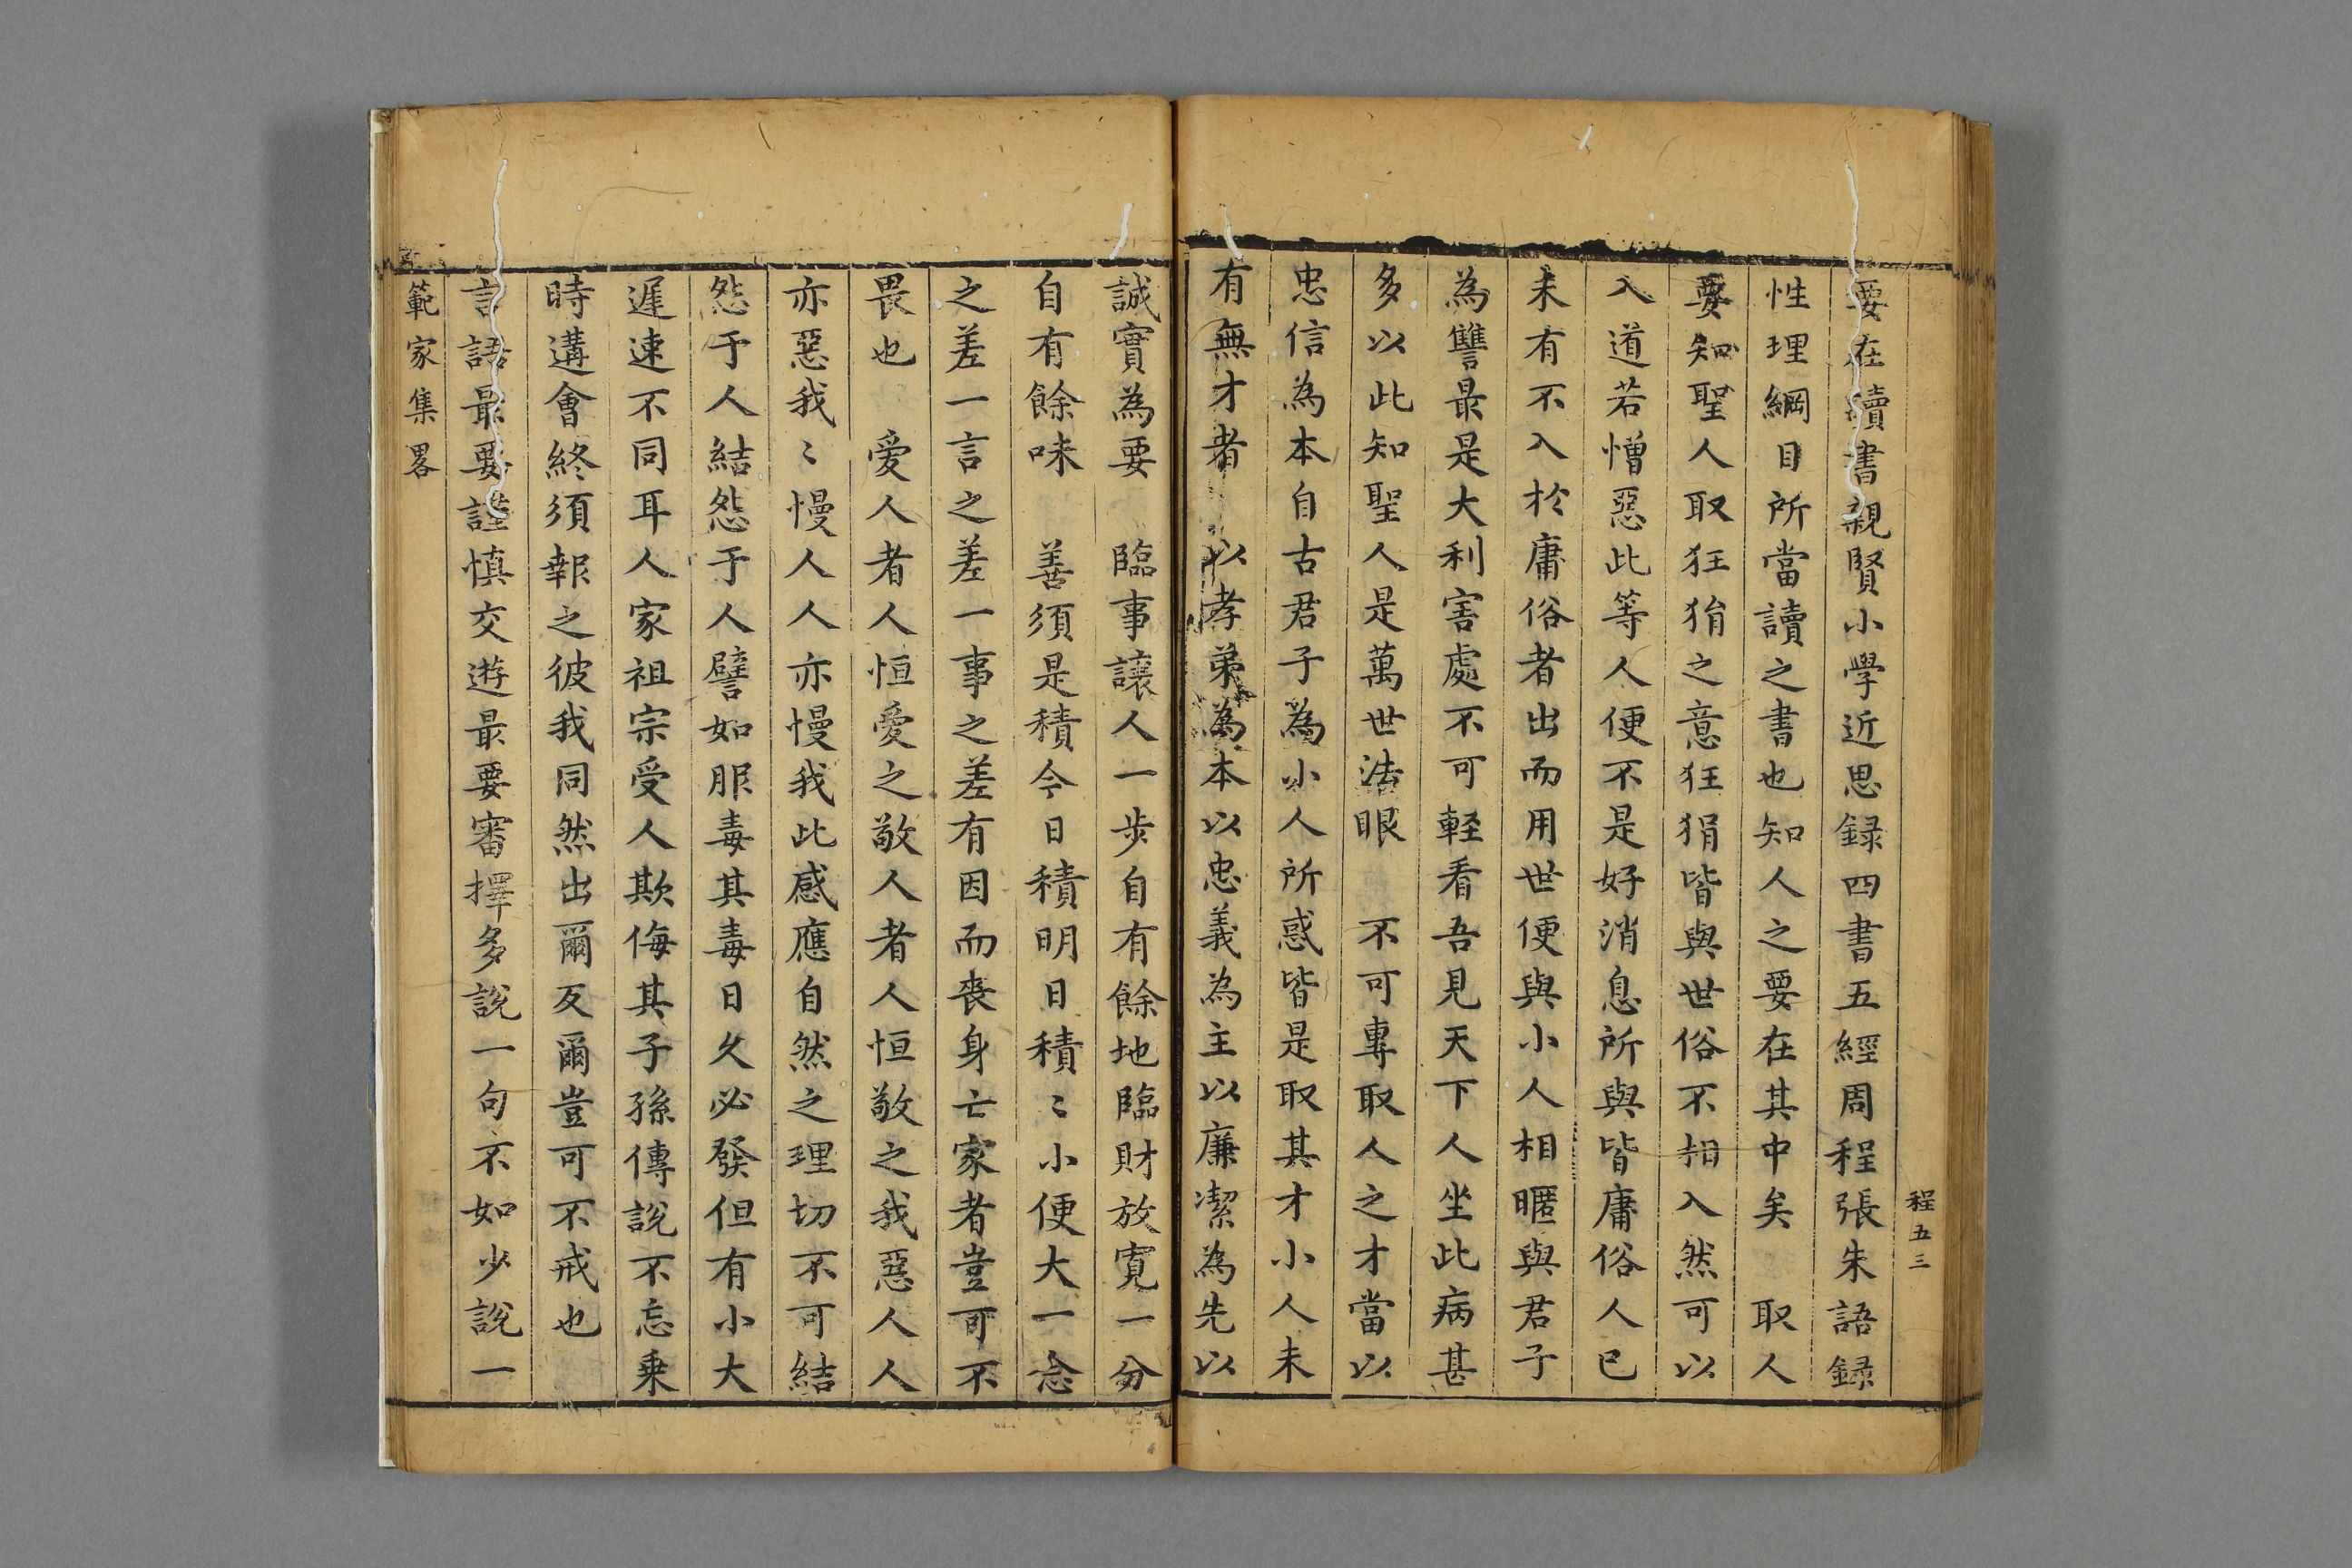 程五三
要在讀書親賢小學近思録四書五經周程張朱語録
性理綱目所當讀之書也知人之要在其中矣　取人
要知聖人取狂狷之意狂狷皆與世俗不相入然可以
入道若憎惡此等人便不是好消息所與皆庸俗人已
未有不入於庸俗者出而用世便與小人相暱與君子
為讐最是大利害處不可輕看吾見天下人坐此病甚
多以此知聖人是萬世法眼　不可專取人之才當以
忠信為本自古君子為小人所惑皆是取其才小人未
有無才者　以孝弟為本以忠義為主以廉潔為先以
誠實為要　臨事讓人一步自有餘地臨財放寬一分
自有餘味　善須是積今日積明日積〻小便大一念
之差一言之差一事之差有因而喪身亡家者豈可不
畏也　愛人者人恒愛之敬人者人恒敬之我惡人人
亦惡我〻慢人人亦慢我此感應自然之理切不可結
怨于人結怨于人譬如服毒其毒日久必發但有小大
遲速不同耳人家祖宗受人欺侮其子孫傳說不忘乗
時遘會終須報之彼我同然出爾反爾豈可不戒也
言語最要謹慎交遊最要審擇多說一句不如少說一
範家集畧